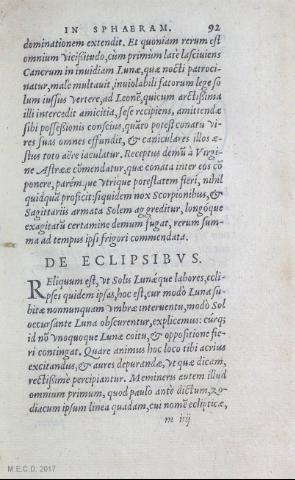 IN SPHAERAM. 92
dominationem extendit. Et quoniam rerum est
omnium vicissitudo, cùm primum latè lasciuiens
Cancrum in inuidiam Lunæ, quæ nocti patroci-
natur, malè multauit, inuiolabili fatorum lege so
lum iussus vertere, ad Leonē, quicum arctissima
illi intercedit amicitia, sese recipiens, amittendæ
sibi possessionis conscius, quāto potest conatu vi-
res suas omnes effundit, & caniculares illos æ-
stus toto aëre iaculatur. Receptus demū à Virgi-
ne Astrææ cōmendatur, quæ conata inter eos cō
ponere, parēm-que vtrique potestatem fieri, nihil
quidquā proficit: siquidem nox Scorpionibus, &
Sagittariis armata Solem aggreditur, longóque
exagitatū certamine demum fugat, rerum sum-
ma ad tempus ipsi frigori commendata.
DE ECLIPSIBVS.
Reliquum est, vt Solis Lunǽque labores, ecli-
pses quidem ipsas, hoc est, cur modò Luna su-
bitæ nonnunquam vmbræ interuentu, modò Sol
occursante Luna obscurentur, explicemus: cúrq;
id nō vnoquoque Lunæ coitu, & oppositione fie-
ri contingat. Quare animus hoc loco tibi acrius
excitandus, & aures depurandæ, vt quæ dicam,
rectissimè percipiantur. Memineris autem illud
omnium primum, quod paulò antè dictum, zo-
diacum ipsum linea quadam, cui nomē eclipticæ,
m iiij
M.E.C.D. 2017